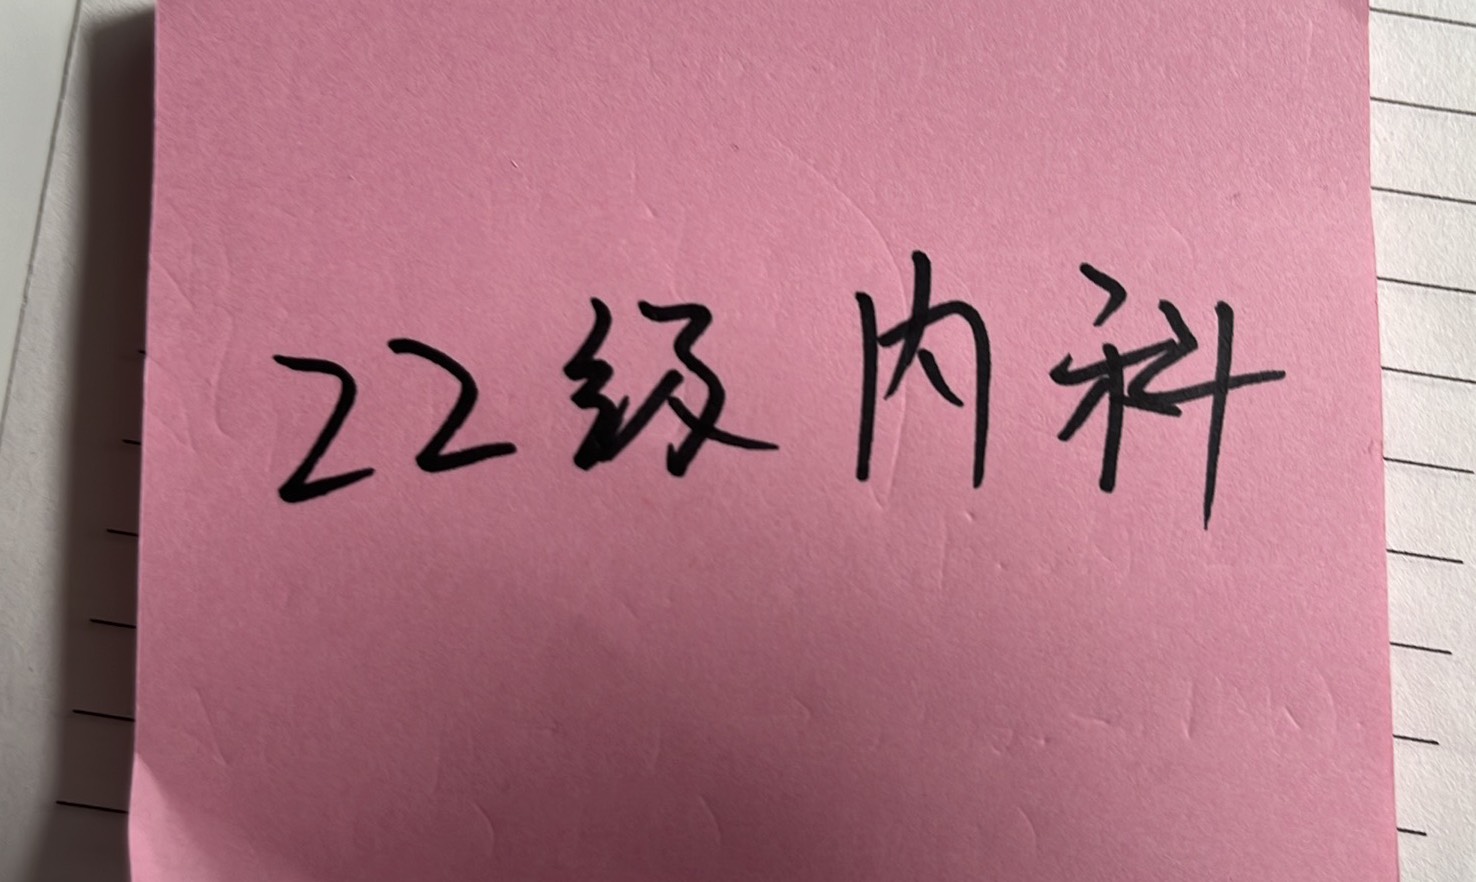 22级内科